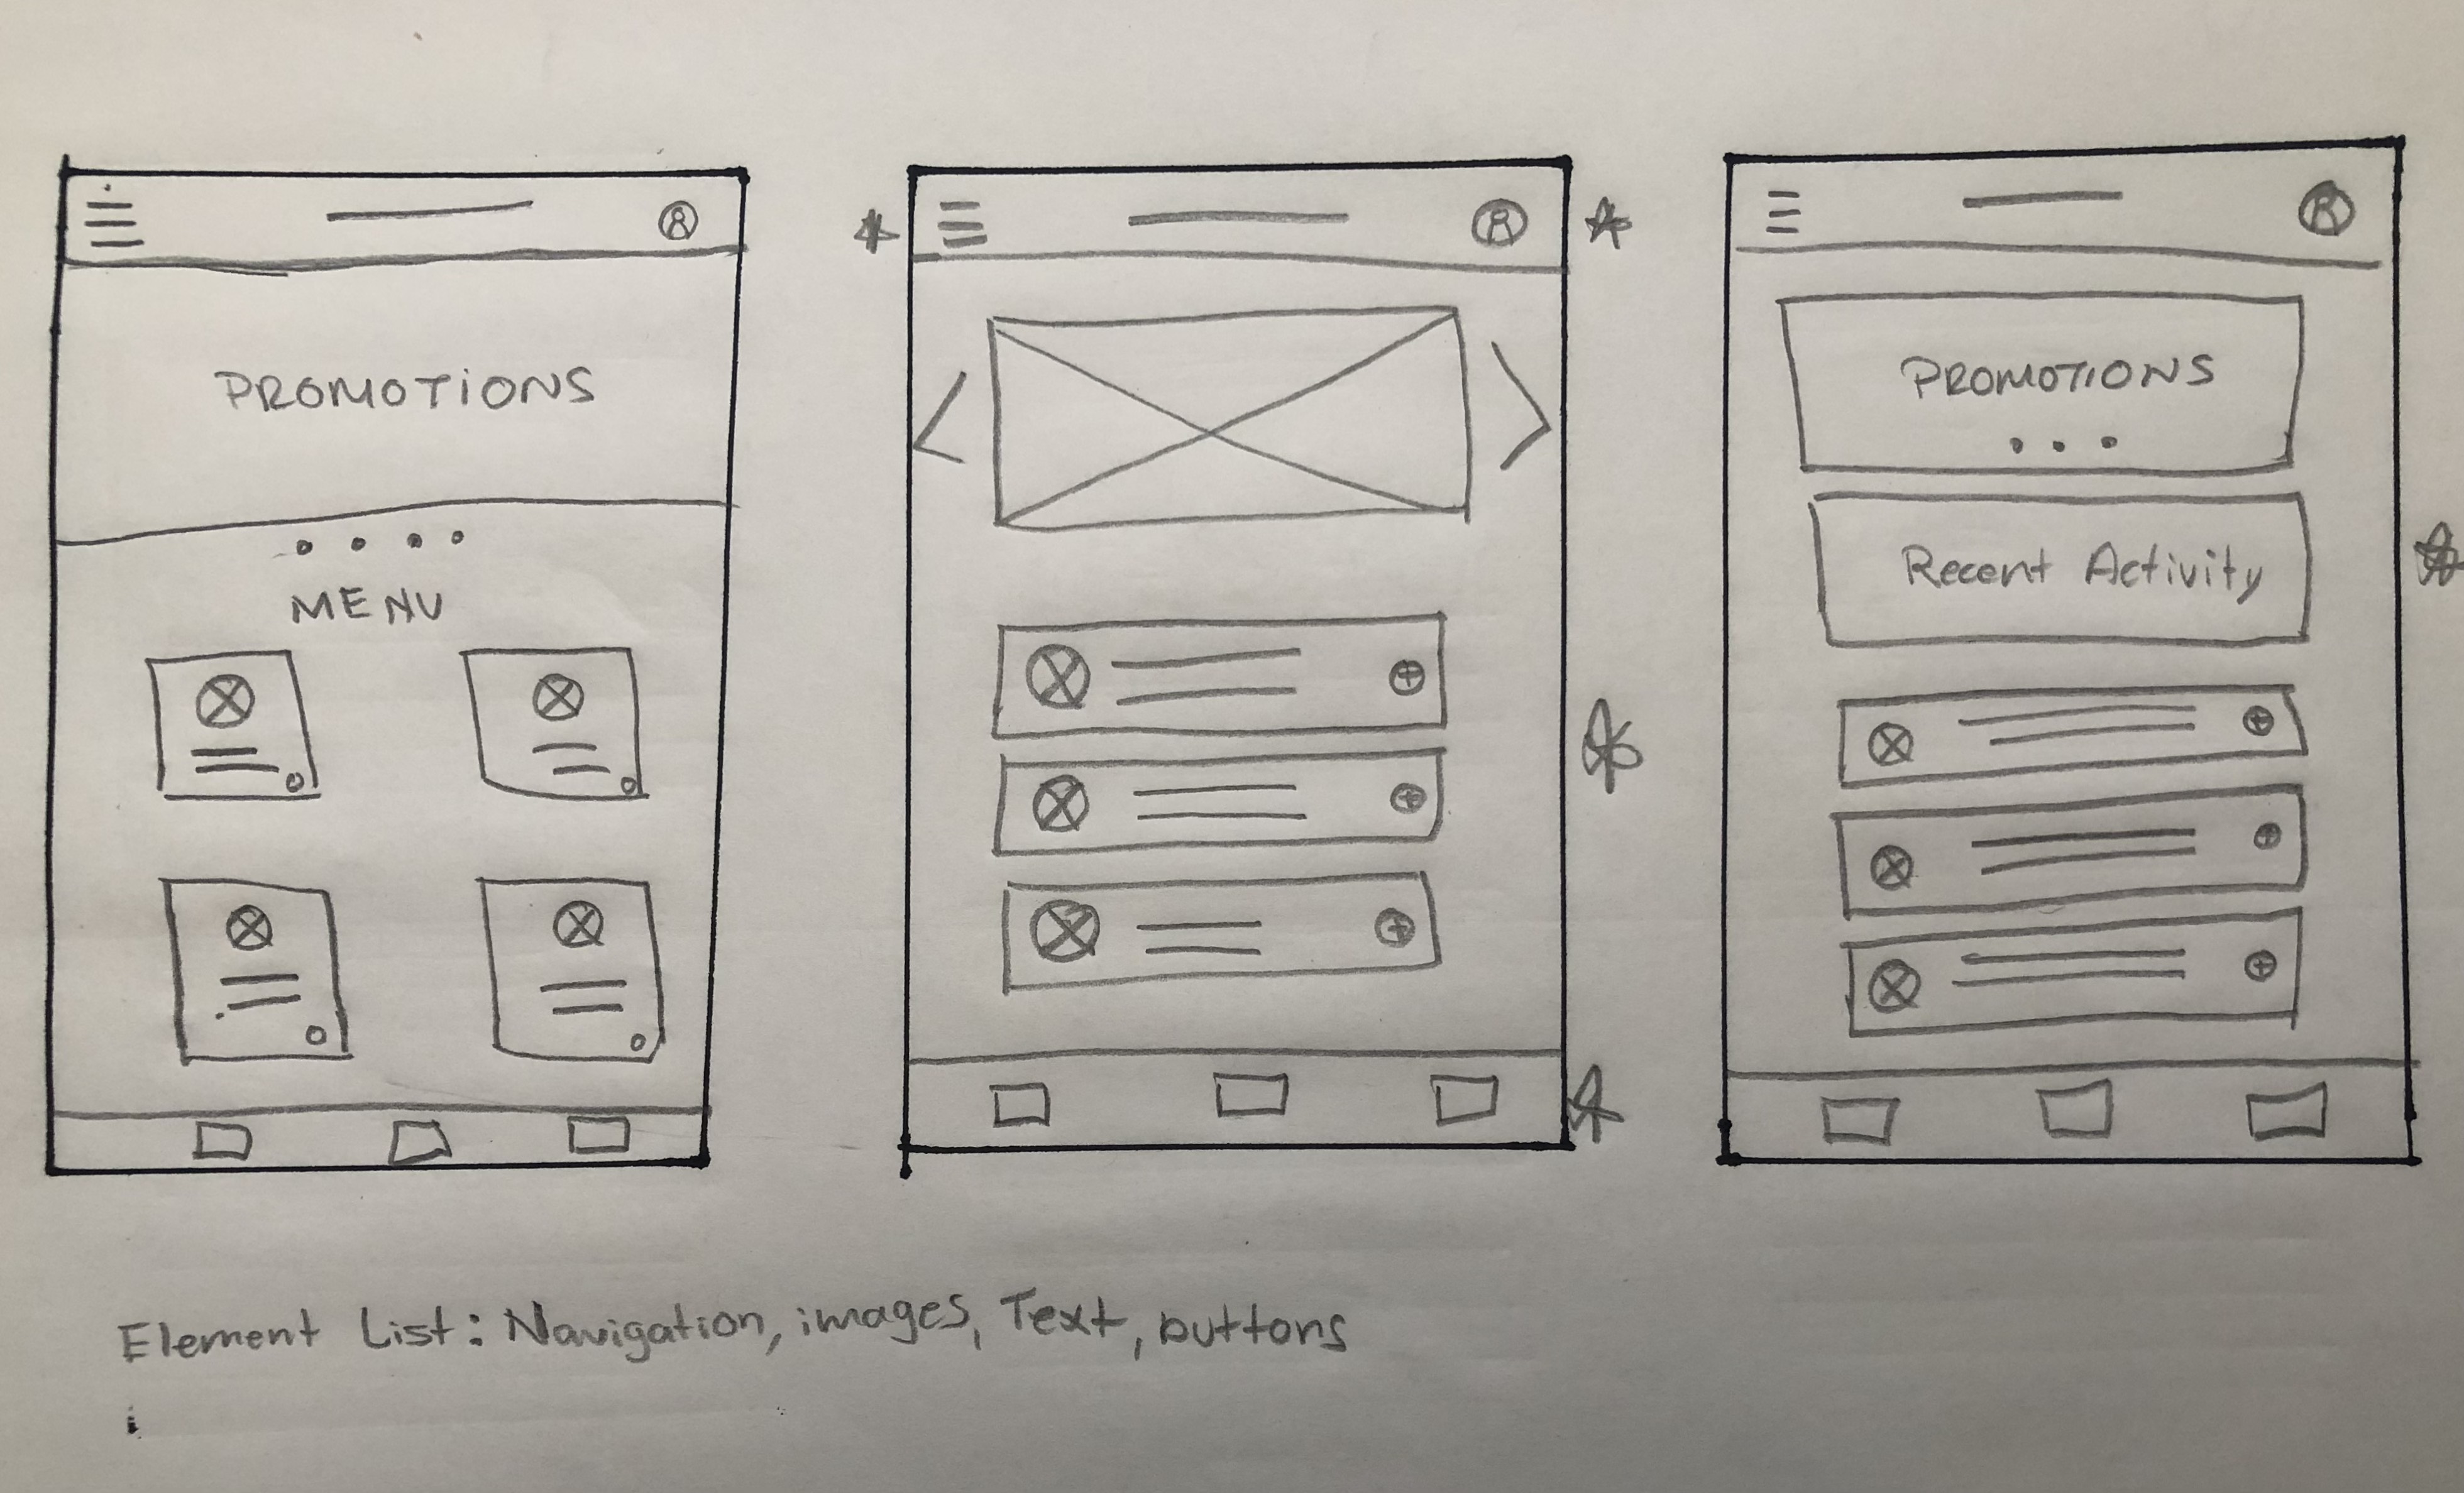 PROMOTIONS
MENU
PROMOTIONS
Recent Activity
Element List: Navigation, images, Text, buttons